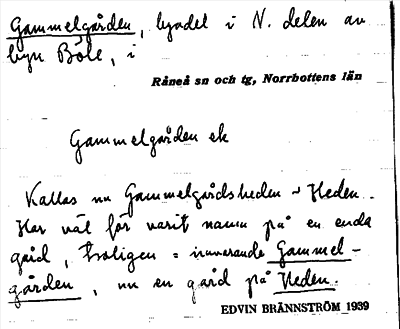 Gammelgården, bydel i N. delen av
byn Böle, i
Råneå sn och tg, Norrbottens län
Gammelgården ek
Kallas nu Gammelgårdsheden ~ Heden.
Har väl förr varit namn på en enda
gård, troligen = nuvarande Gammel-
gården, nu en gård på Heden.
EDVIN BRÄNNSTRÖM 1939